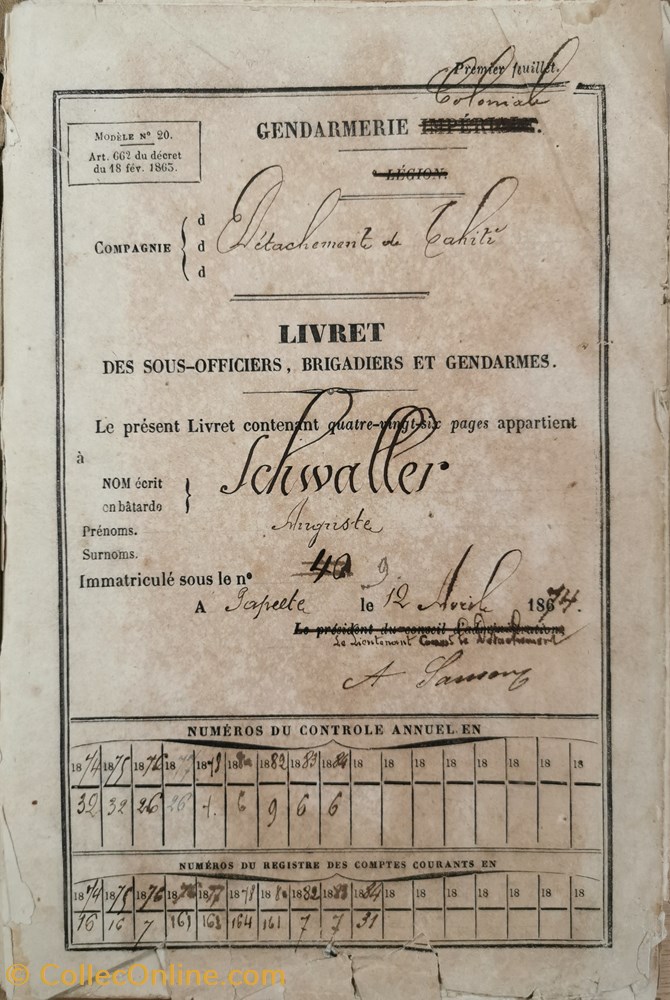 Premier feuillet.
Coloniale
GENDARMERIE IMPÉRIALE.
MODÈLE N° 20.
Art. 662 du décret
du 18 fév. 1863.
LÉGION.
d
COMPAGNIE d Détachement de Tahiti
d
LIVRET
DES SOUS-OFFICIERS, BRIGADIERS ET GENDARMES.
Le présent Livret contenant quatre-vingt-six pages appartient
à
NOM écrit
en bâtarde
Schwaller
Prénoms. Auguste
Surnoms.
Immatriculé sous le n° 40 9
A Papeete le 12 Avril 1874.
Le président du conseil d'administration
Le Lieutenant Commt le Détachement
A Samson
NUMÉROS DU CONTROLE ANNUEL EN
1874 1875 1876 1877 1879 188 1882 1883 1884 18 18 18 18 18 18 18 18
32 32 26 26 1. 6 9 6 6
NUMÉROS DU REGISTRE DES COMPTES COURANTS EN
1874 1875 1876 1876 1877 1878 18 1882 1883 1884 18 18 18 18 18 18 18
16 16 7 163 163 164 161 7 7 31
© CollecOnline.com